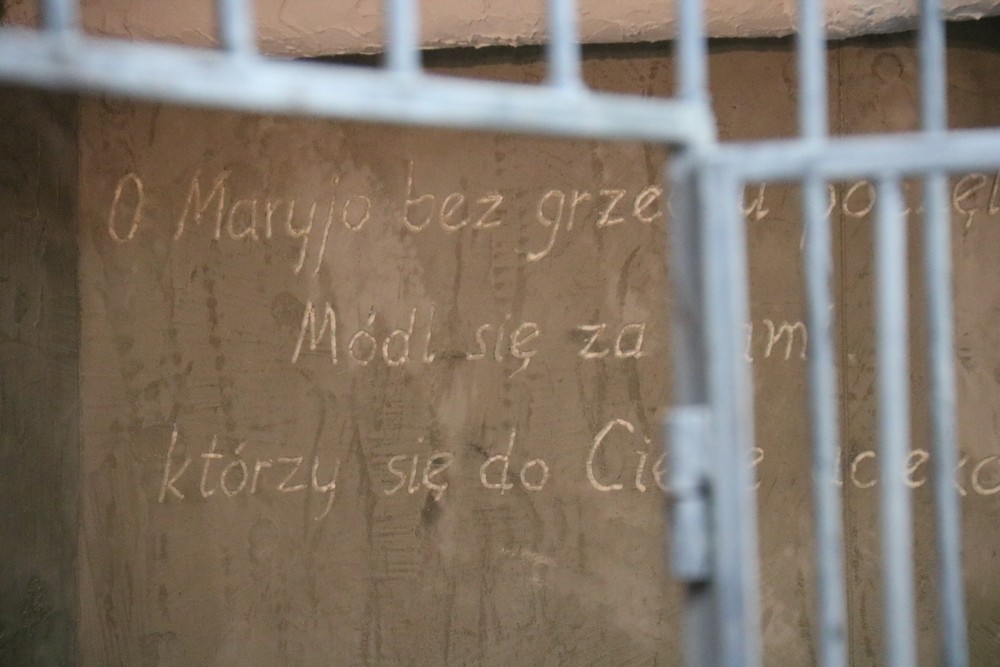 O Maryjo bez grzechu poczęt
Módl się za nami
którzy się do Ciebie uciekc